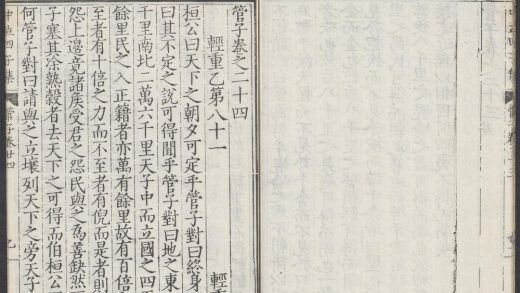 管子卷之二十四
輕重乙第八十一 輕重
桓公曰天下之朝夕可定乎管子對曰終身
曰其不定之說可得聞乎管子對曰地之東
千里南北二萬六千里天子中而立國之四
餘里民之入正籍者亦萬有餘里故有百倍
至者有十倍之力而不至者有倪而是者則
怨上邊竟諸侯受君之怨民與之為善缺然
子塞其涂熟穀者去天下之可得而伯桓公
何管子對曰請與之立壤列天下之旁天子
中立四子集 管子卷廿四